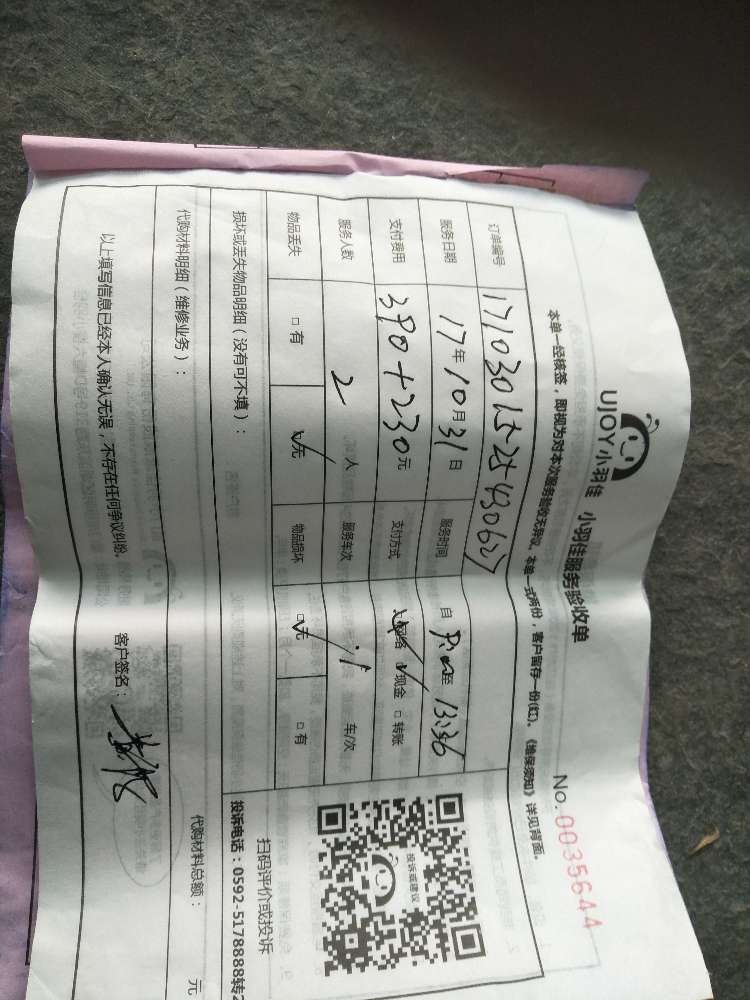 UJOY小羽佳 小羽佳服务验收单
No.0035644
本单一经核签，即视为对本次服务验收无异议。本单一式两份，客户留存一份(红)。《维保须知》详见背面。
订单编号
服务日期 17年10月31日 服务时间 自 至 13:36
支付费用 390+230元 支付方式 网络 现金 □转账
服务人数 2 人 服务车次 1 车/次
物品丢失 □有 无 物品损坏 □无 □有
损坏或丢失物品明细（没有可不填）：
代购材料明细（维修业务）：
代购材料总额： 元
以上填写信息已经本人确认无误，不存在任何争议纠纷。
客户签名：
投诉或建议
扫码评价或投诉
投诉电话：0592-5178888转2